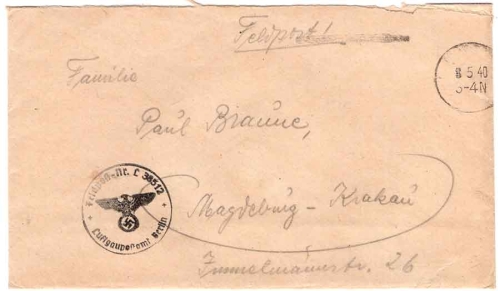 Feldpost!
8 5.40
3-4N
Familie
Paul Braune,
Feldpost-Nr. L 38512
Luftgaupostamt Berlin
Magdeburg - Krakau
Immelmannstr. 26